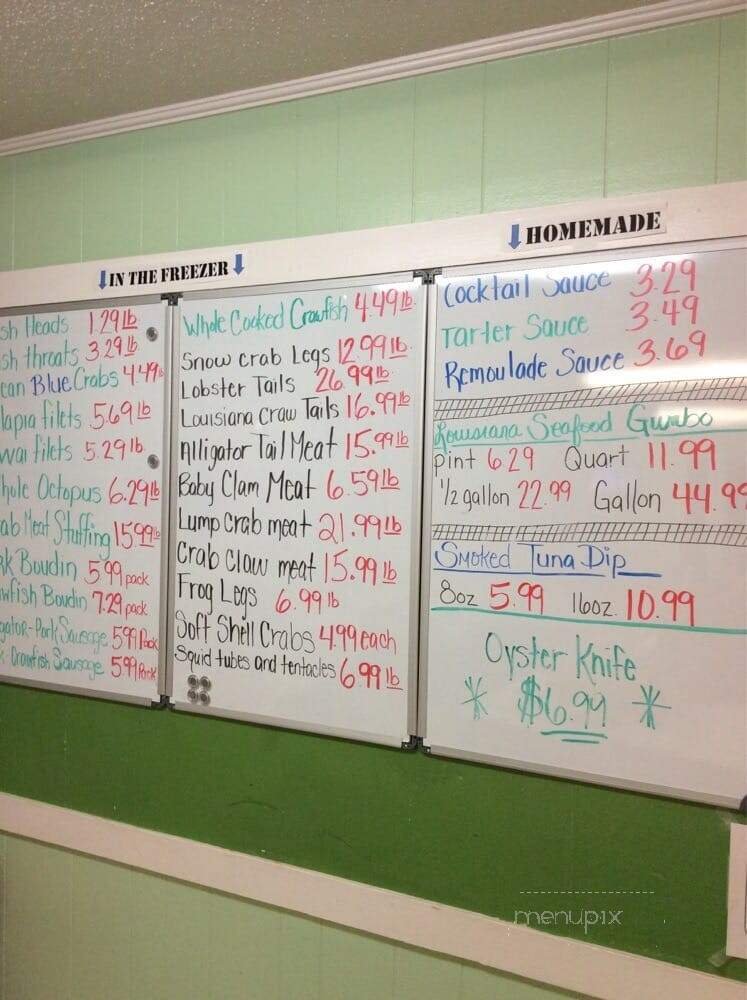 IN THE FREEZER
sh Heads 1.29 lb
sh throats 3.29 lb
can Blue Crabs 4.49
lapia filets 5.69 lb
wai filets 5.29 lb
hole Octopus 6.29 lb
ab Meat Stuffing 15.99
rk Boudin 5.99 pack
wfish Boudin 7.29 pack
gator-Pork Sausage 5.99 Pack
Crawfish Sausage 5.99 Pack
Whole Cooked Crawfish 4.49 lb
Snow crab Legs 12.99 lb
Lobster Tails 26.99 lb
Louisiana Craw Tails 16.99 lb
Alligator Tail Meat 15.99 lb
Baby Clam Meat 6.59 lb
Lump Crab meat 21.99 lb
Crab Claw meat 15.99 lb
Frog Legs 6.99 lb
Soft Shell Crabs 4.99 each
Squid tubes and tentacles 6.99 lb
HOMEMADE
Cocktail Sauce 3.29
Tarter Sauce 3.49
Remoulade Sauce 3.69
Louisiana Seafood Gumbo
pint 6.29 Quart 11.99
1/2 gallon 22.99 Gallon 44.99
Smoked Tuna Dip
8oz 5.99 16oz. 10.99
Oyster Knife
* $6.99 *
menupix